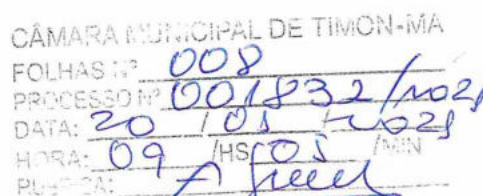 CÂMARA MUNICIPAL DE TIMON-MA
FOLHAS Nº 008
PROCESSO Nº 001832/2025
DATA: 20 / 05 / 2025
HORA: 09 /HS 05 /MIN